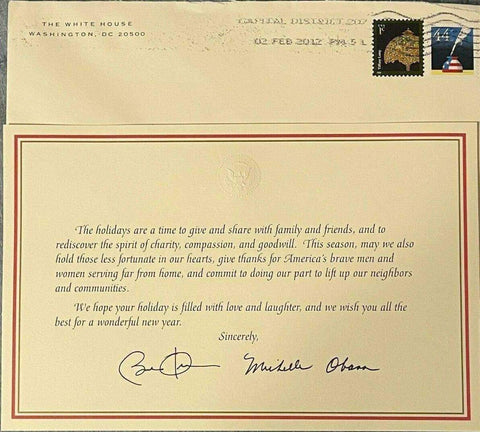 THE WHITE HOUSE
WASHINGTON, DC 20500
CAPITAL DISTRICT 207
02 FEB 2012 PM 5 L
1c
44
The holidays are a time to give and share with family and friends, and to
rediscover the spirit of charity, compassion, and goodwill. This season, may we also
hold those less fortunate in our hearts, give thanks for America's brave men and
women serving far from home, and commit to doing our part to lift up our neighbors
and communities.
We hope your holiday is filled with love and laughter, and we wish you all the
best for a wonderful new year.
Sincerely,
Michelle Obama